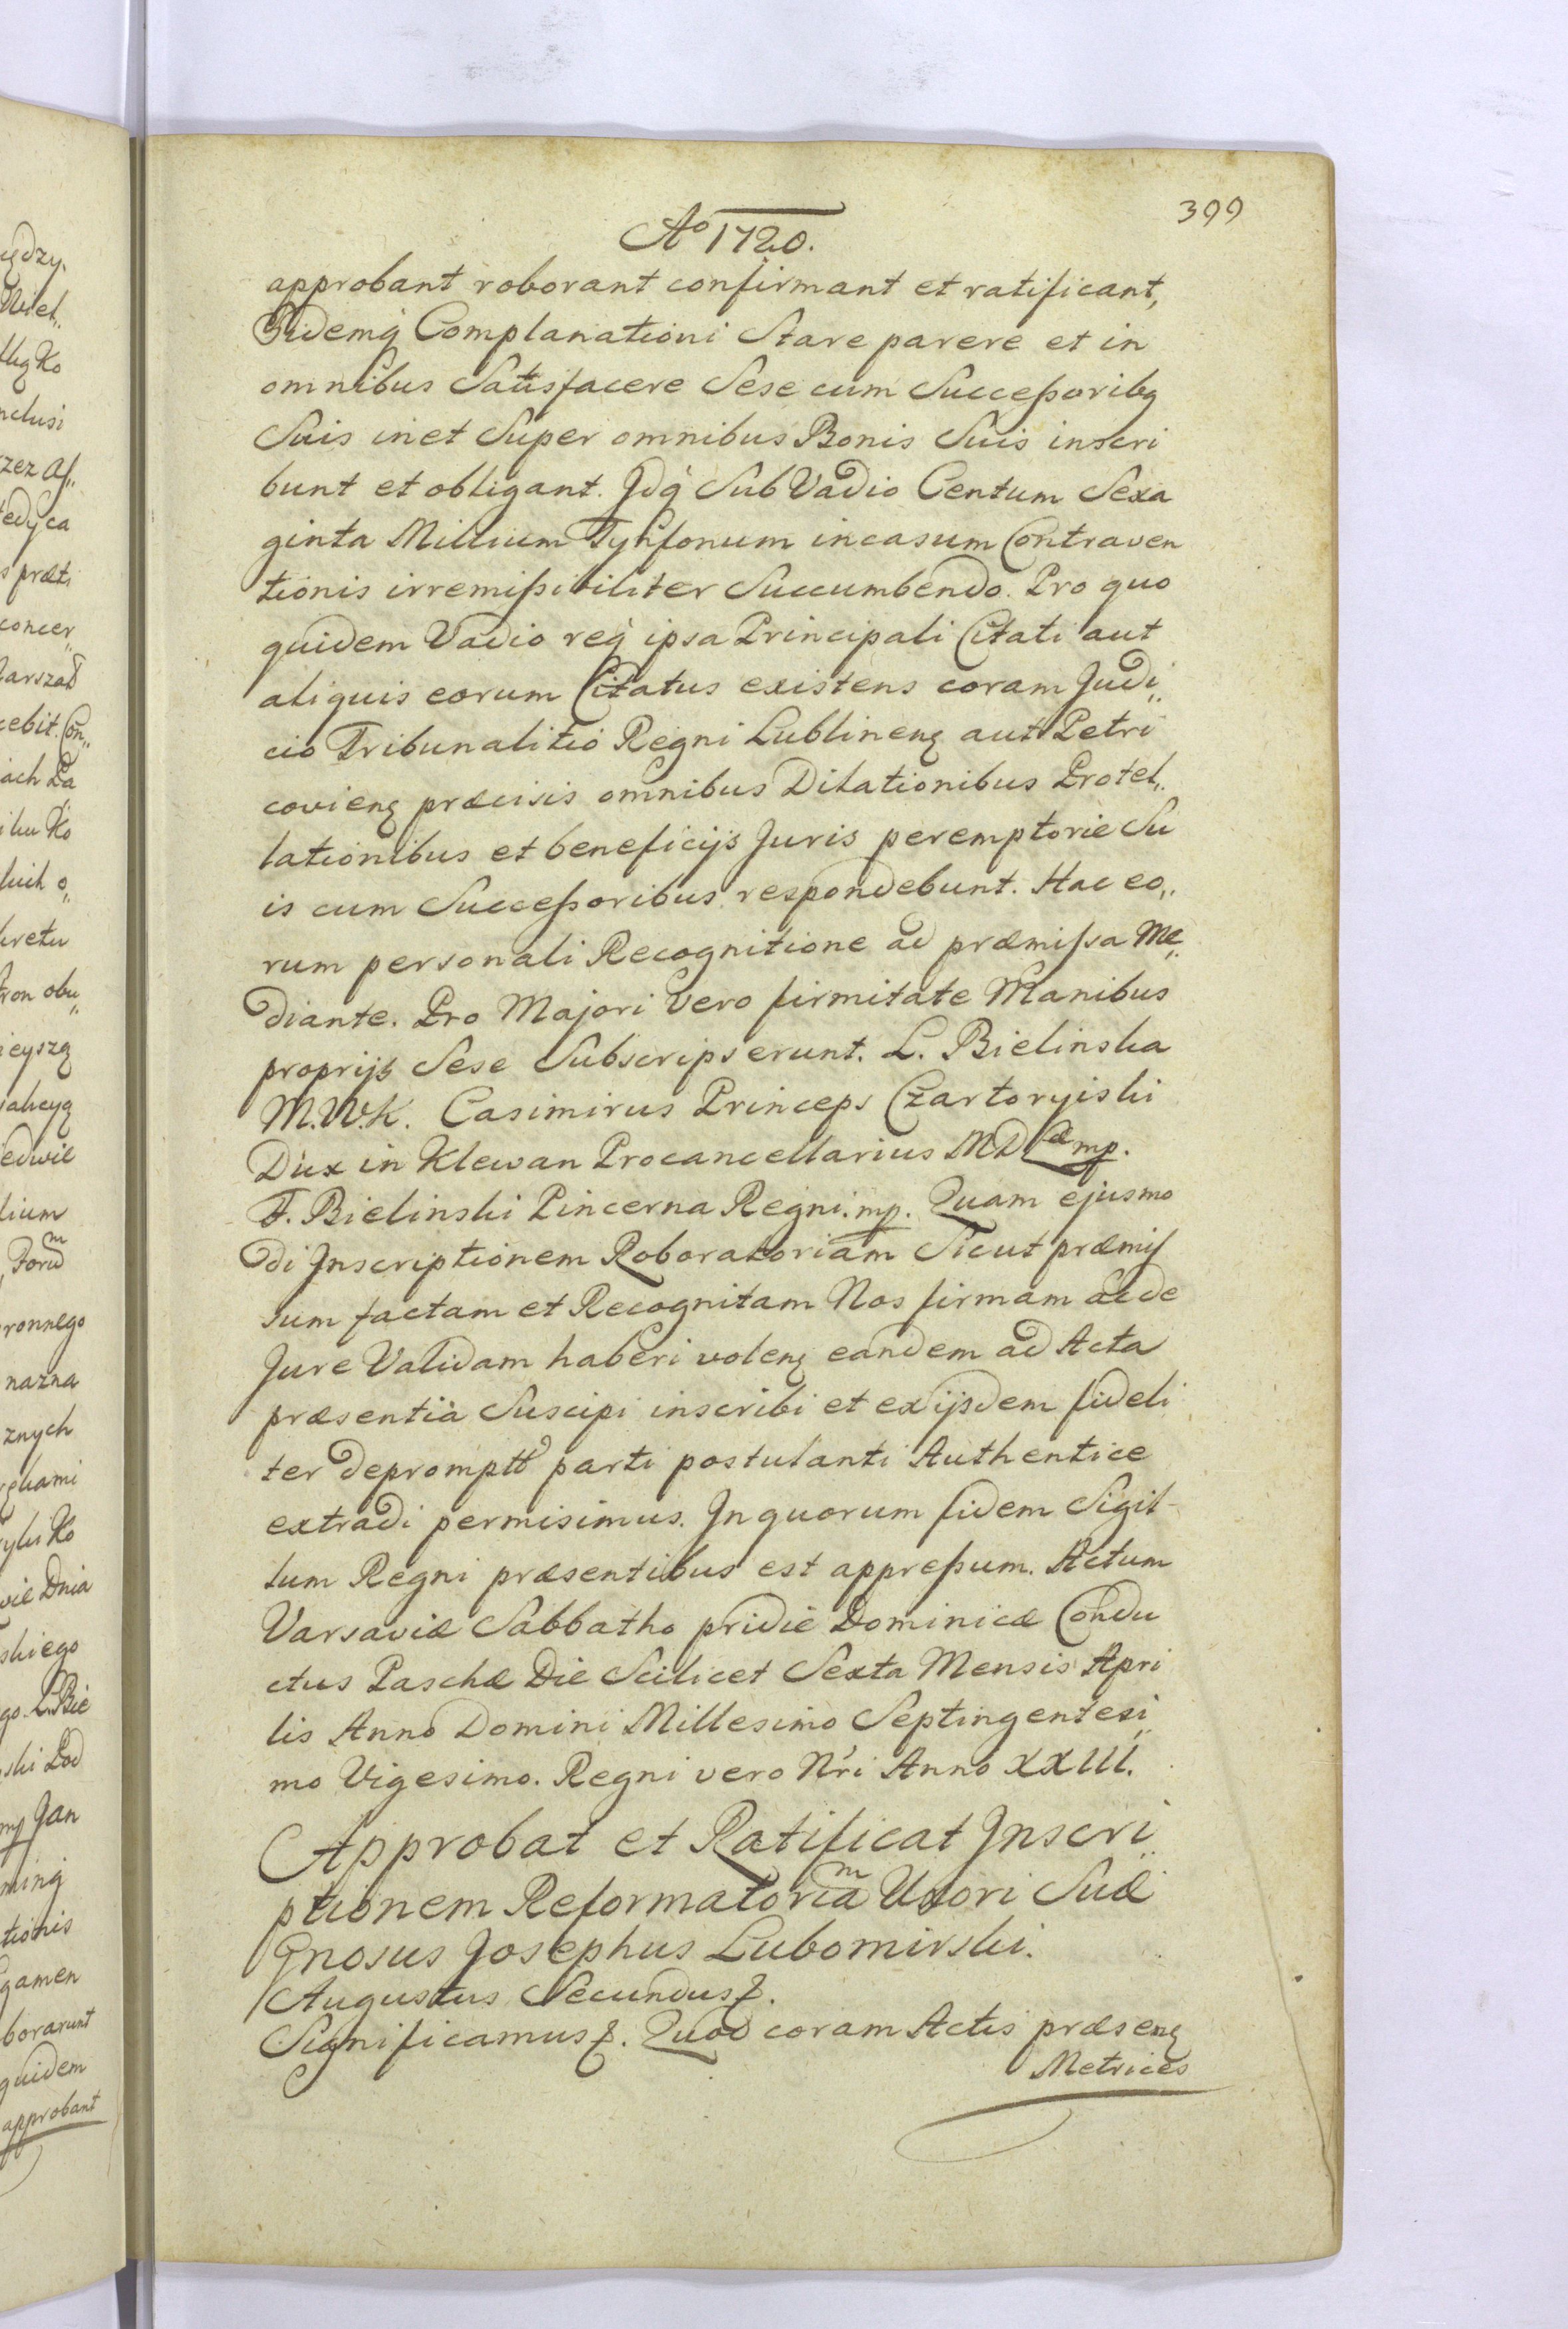 399
Aº 1720.
approbant roborant confirmant et ratificant,
Eidemq́ Complanationi Stare parere et in
omnibus Satisfacere Sese cum Succeßoribq
Suis in et Super omnibus Bonis Suis inscri
bunt et obligant. Idq́ Sub Vadio Centum Sexa
ginta Millium Tynfonum in casum Contraven
tionis irremißibiliter Succumbendo. Pro quo
quidem Vadio req́ ipsa Principali Citati aut
aliquis eorum Citatus existens coram Judi„
cio Tribunalitio Regni Lublinenq aut Petri
covienq præcisis omnibus Dilationibus Protel„
lationibus et beneficijs Juris peremptorie Su
is cum Succeßoribus respondebunt. Hac eo„
rum personali Recognitione ad præmißa Me„
diante. Pro Majori vero firmitate Manibus
proprijs Sese Subscripserunt. L. Bielinska
M.W.K. Casimirus Princeps Czartoryiski
Dux in Klewan Procancellarius MDLæ mp.
F. Bielinski Pincerna Regni. mp. Quam ejusmo
di Inscriptionem Roboratoriam Sicut præmis
sum factam et Recognitam Nos firmam ac de
Jure Validam haberi volenq eandem ad Acta
præsentia Suscipi inscribi et ex ijsdem fideli
ter depromptt parti postulanti Authentice
extradi permisimus. In quorum fidem Sigil-
lum Regni præsentibus est appreßum. Actum
Varsaviæ Sabbatho pridie Dominicæ Condu
ctus Paschæ Die Scilicet Sexta Mensis Apri
lis Anno Domini Millesimo Septingentesi„
mo Vigesimo. Regni vero Nri Anno XXIII.
Approbat et Ratificat Inscri„
ptionem Reformatoriam Uxori Suæ
Gnosus Josephus Lubomirski.
Augustus Secundus ⁊.
Significamus ⁊. Quod coram Actis præsenq
Metrices